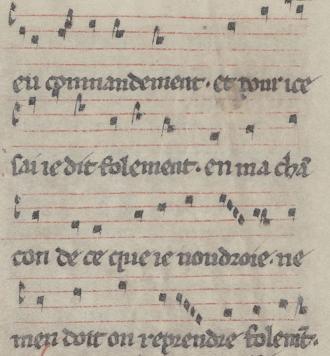 eu cōmandement · et pour ice
sai ie dit folement · en ma chā
con de ce que ie uoudroie · ne
men doit on reprendre folem̄t ·